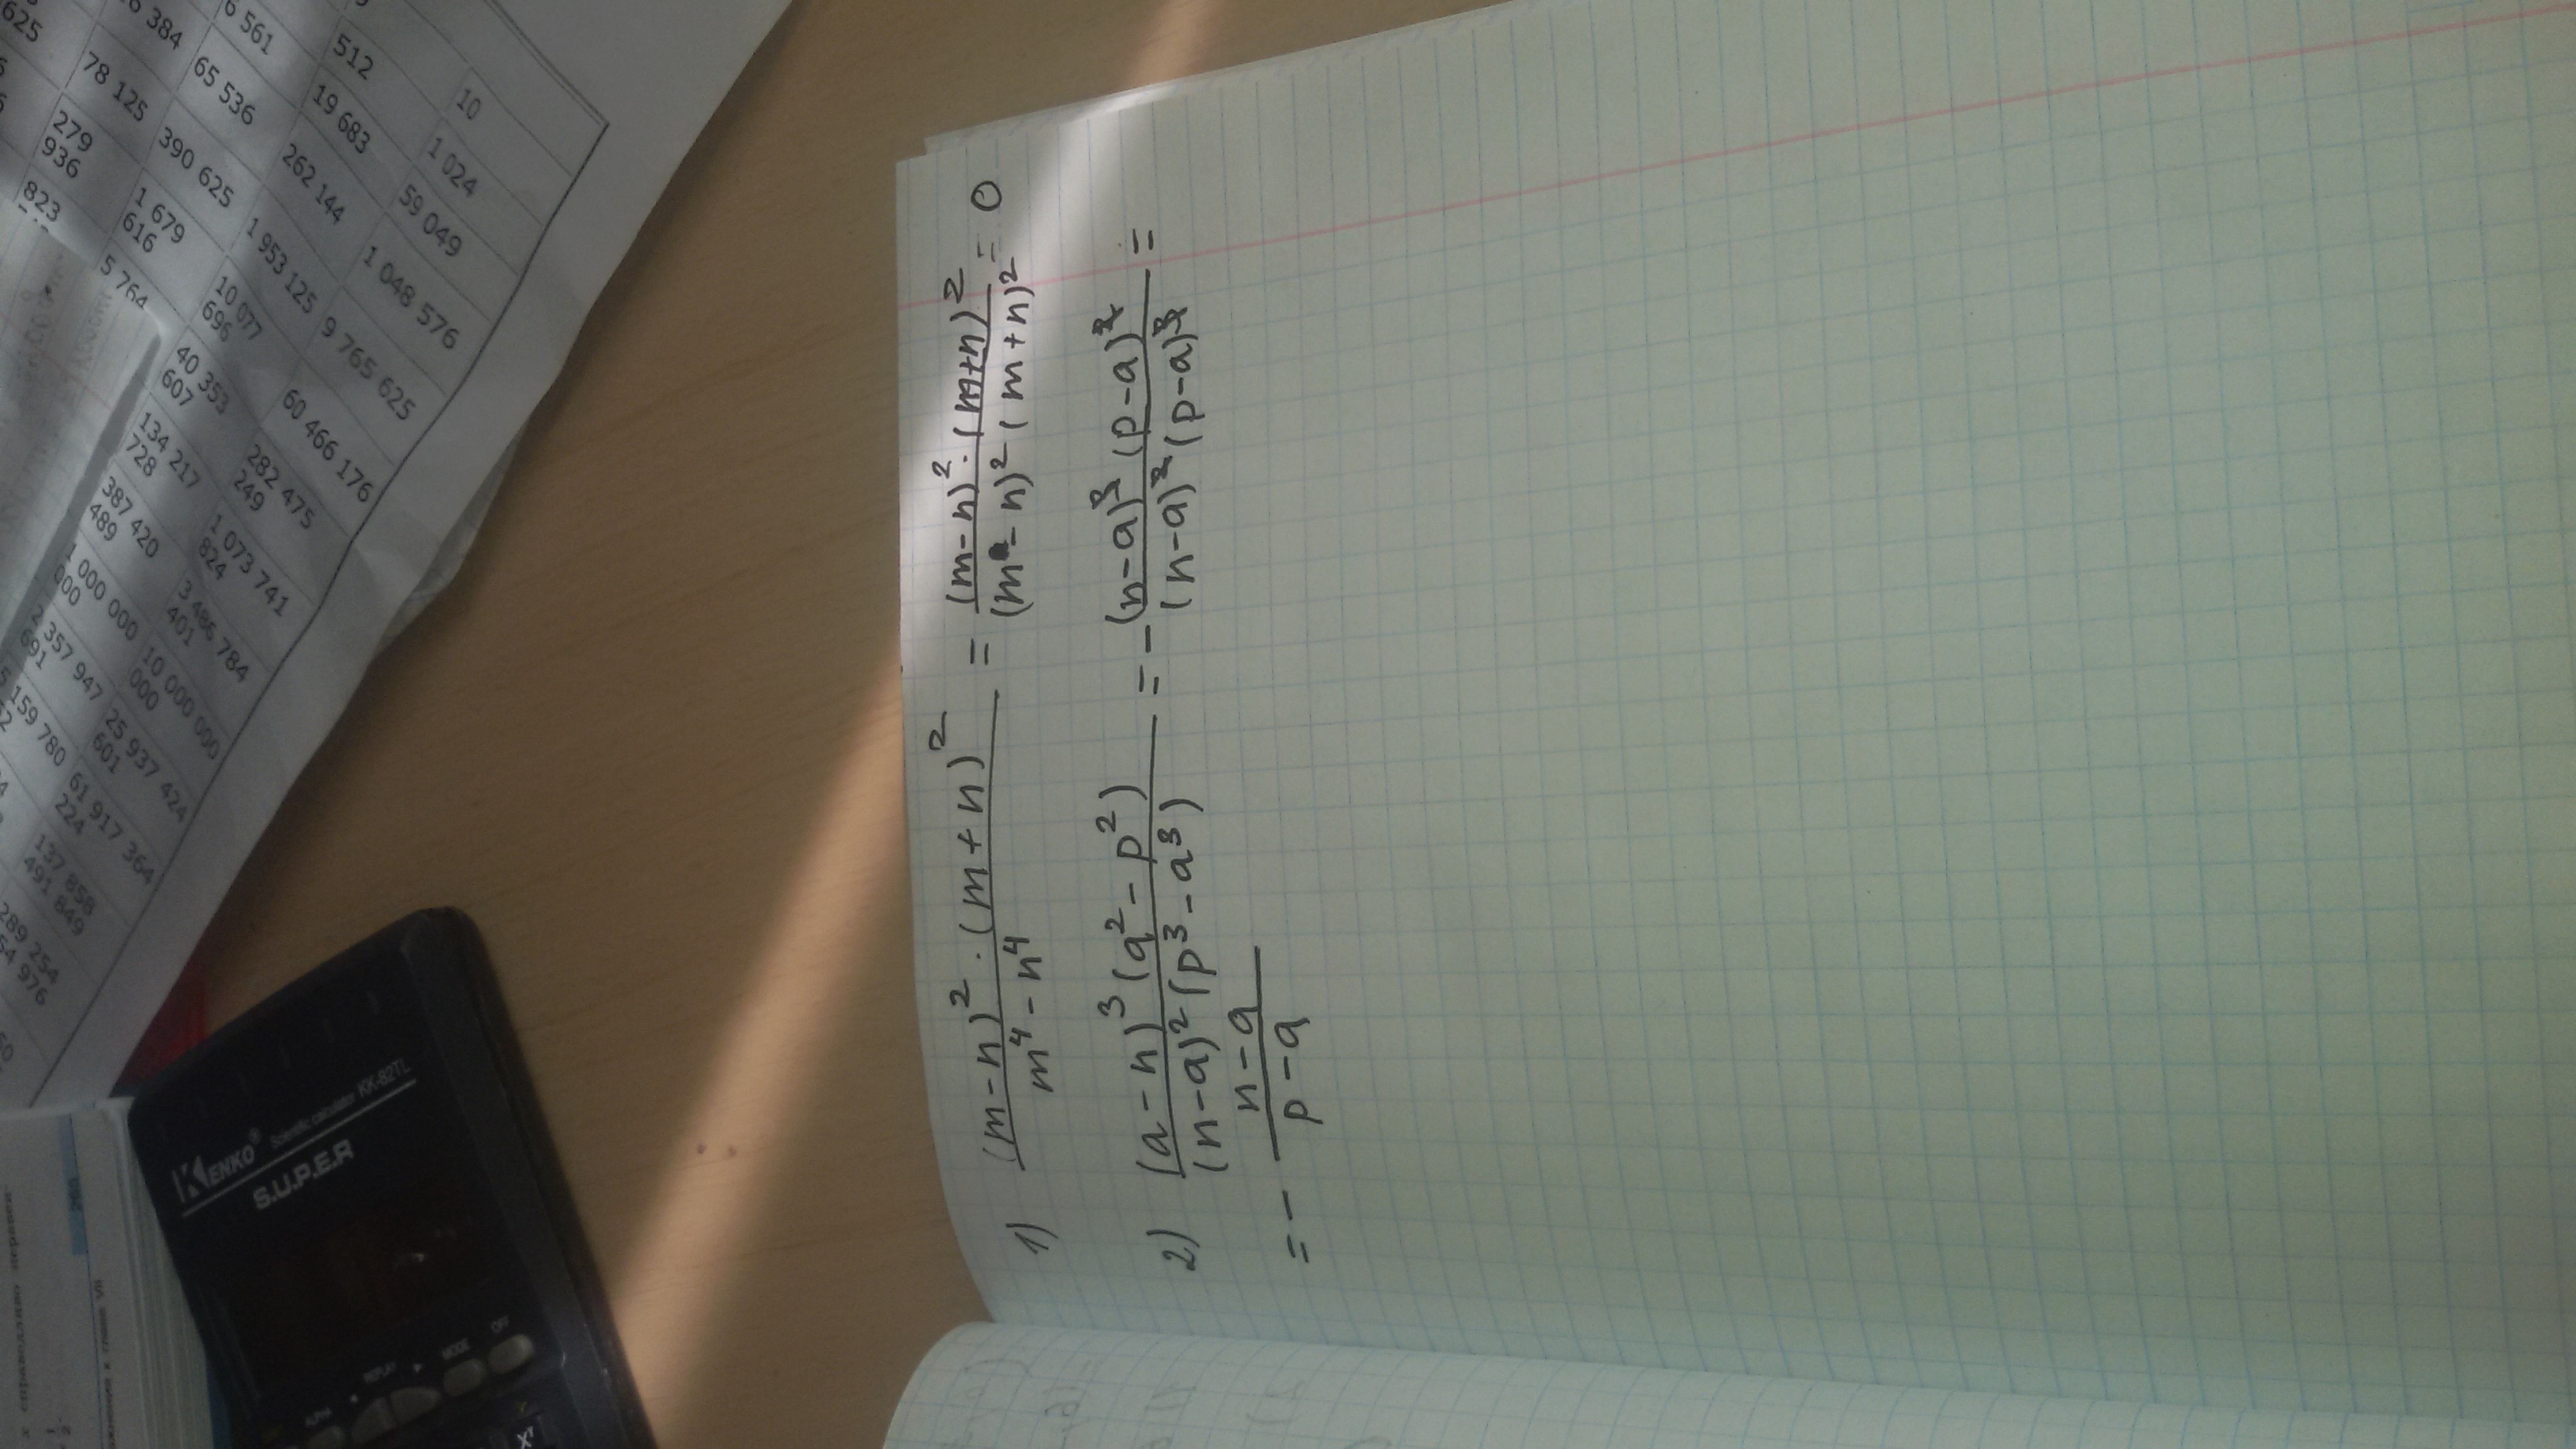 1) (m-n)²·(m+n)² / m⁴-n⁴ = (m-n)²·(m+n)² / (m-n)²(m+n)² = 0
2) (a-n)³(a²-p²) / (n-a)²(p³-a³) = - (n-a)³(p-a)² / (n-a)²(p-a)³ =
= - n-a / p-a
KENKO® Scientific calculator KK-82TL
S.U.P.E.R
ALPHA REPLAY MODE OFF
625 384 6 561 512 10
78 125 65 536 19 683 1 024
279 936 390 625 262 144 59 049
823 1 679 616 1 953 125 1 048 576
5 764 10 077 696 9 765 625
40 353 607 60 466 176
134 217 728 282 475 249
387 420 489 1 073 741 824
1 000 000 000 3 486 784 401
2 357 947 691 10 000 000 000
159 780 25 937 424 601
61 917 364 224
137 858 491 849
289 254 976
x справедливо неравен-
1/2